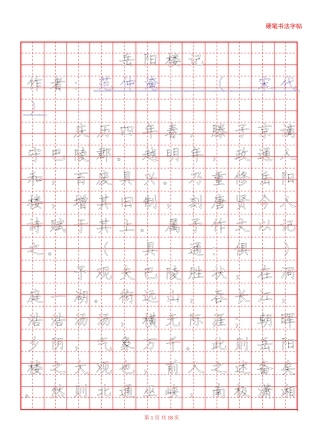 硬笔书法字帖
岳阳楼记
作者：范仲淹（宋代
）
庆历四年春，滕子京谪
守巴陵郡。越明年，政通人
和，百废具兴。乃重修岳阳
楼，增其旧制，刻唐贤今人
诗赋于其上。属予作文以记
之。（具通：俱）
予观夫巴陵胜状，在洞
庭一湖。衔远山，吞长江，
浩浩汤汤，横无际涯；朝晖
夕阴，气象万千。此则岳阳
楼之大观也，前人之述备矣
。然则北通巫峡，南极潇湘
第 1 页 共 18 页